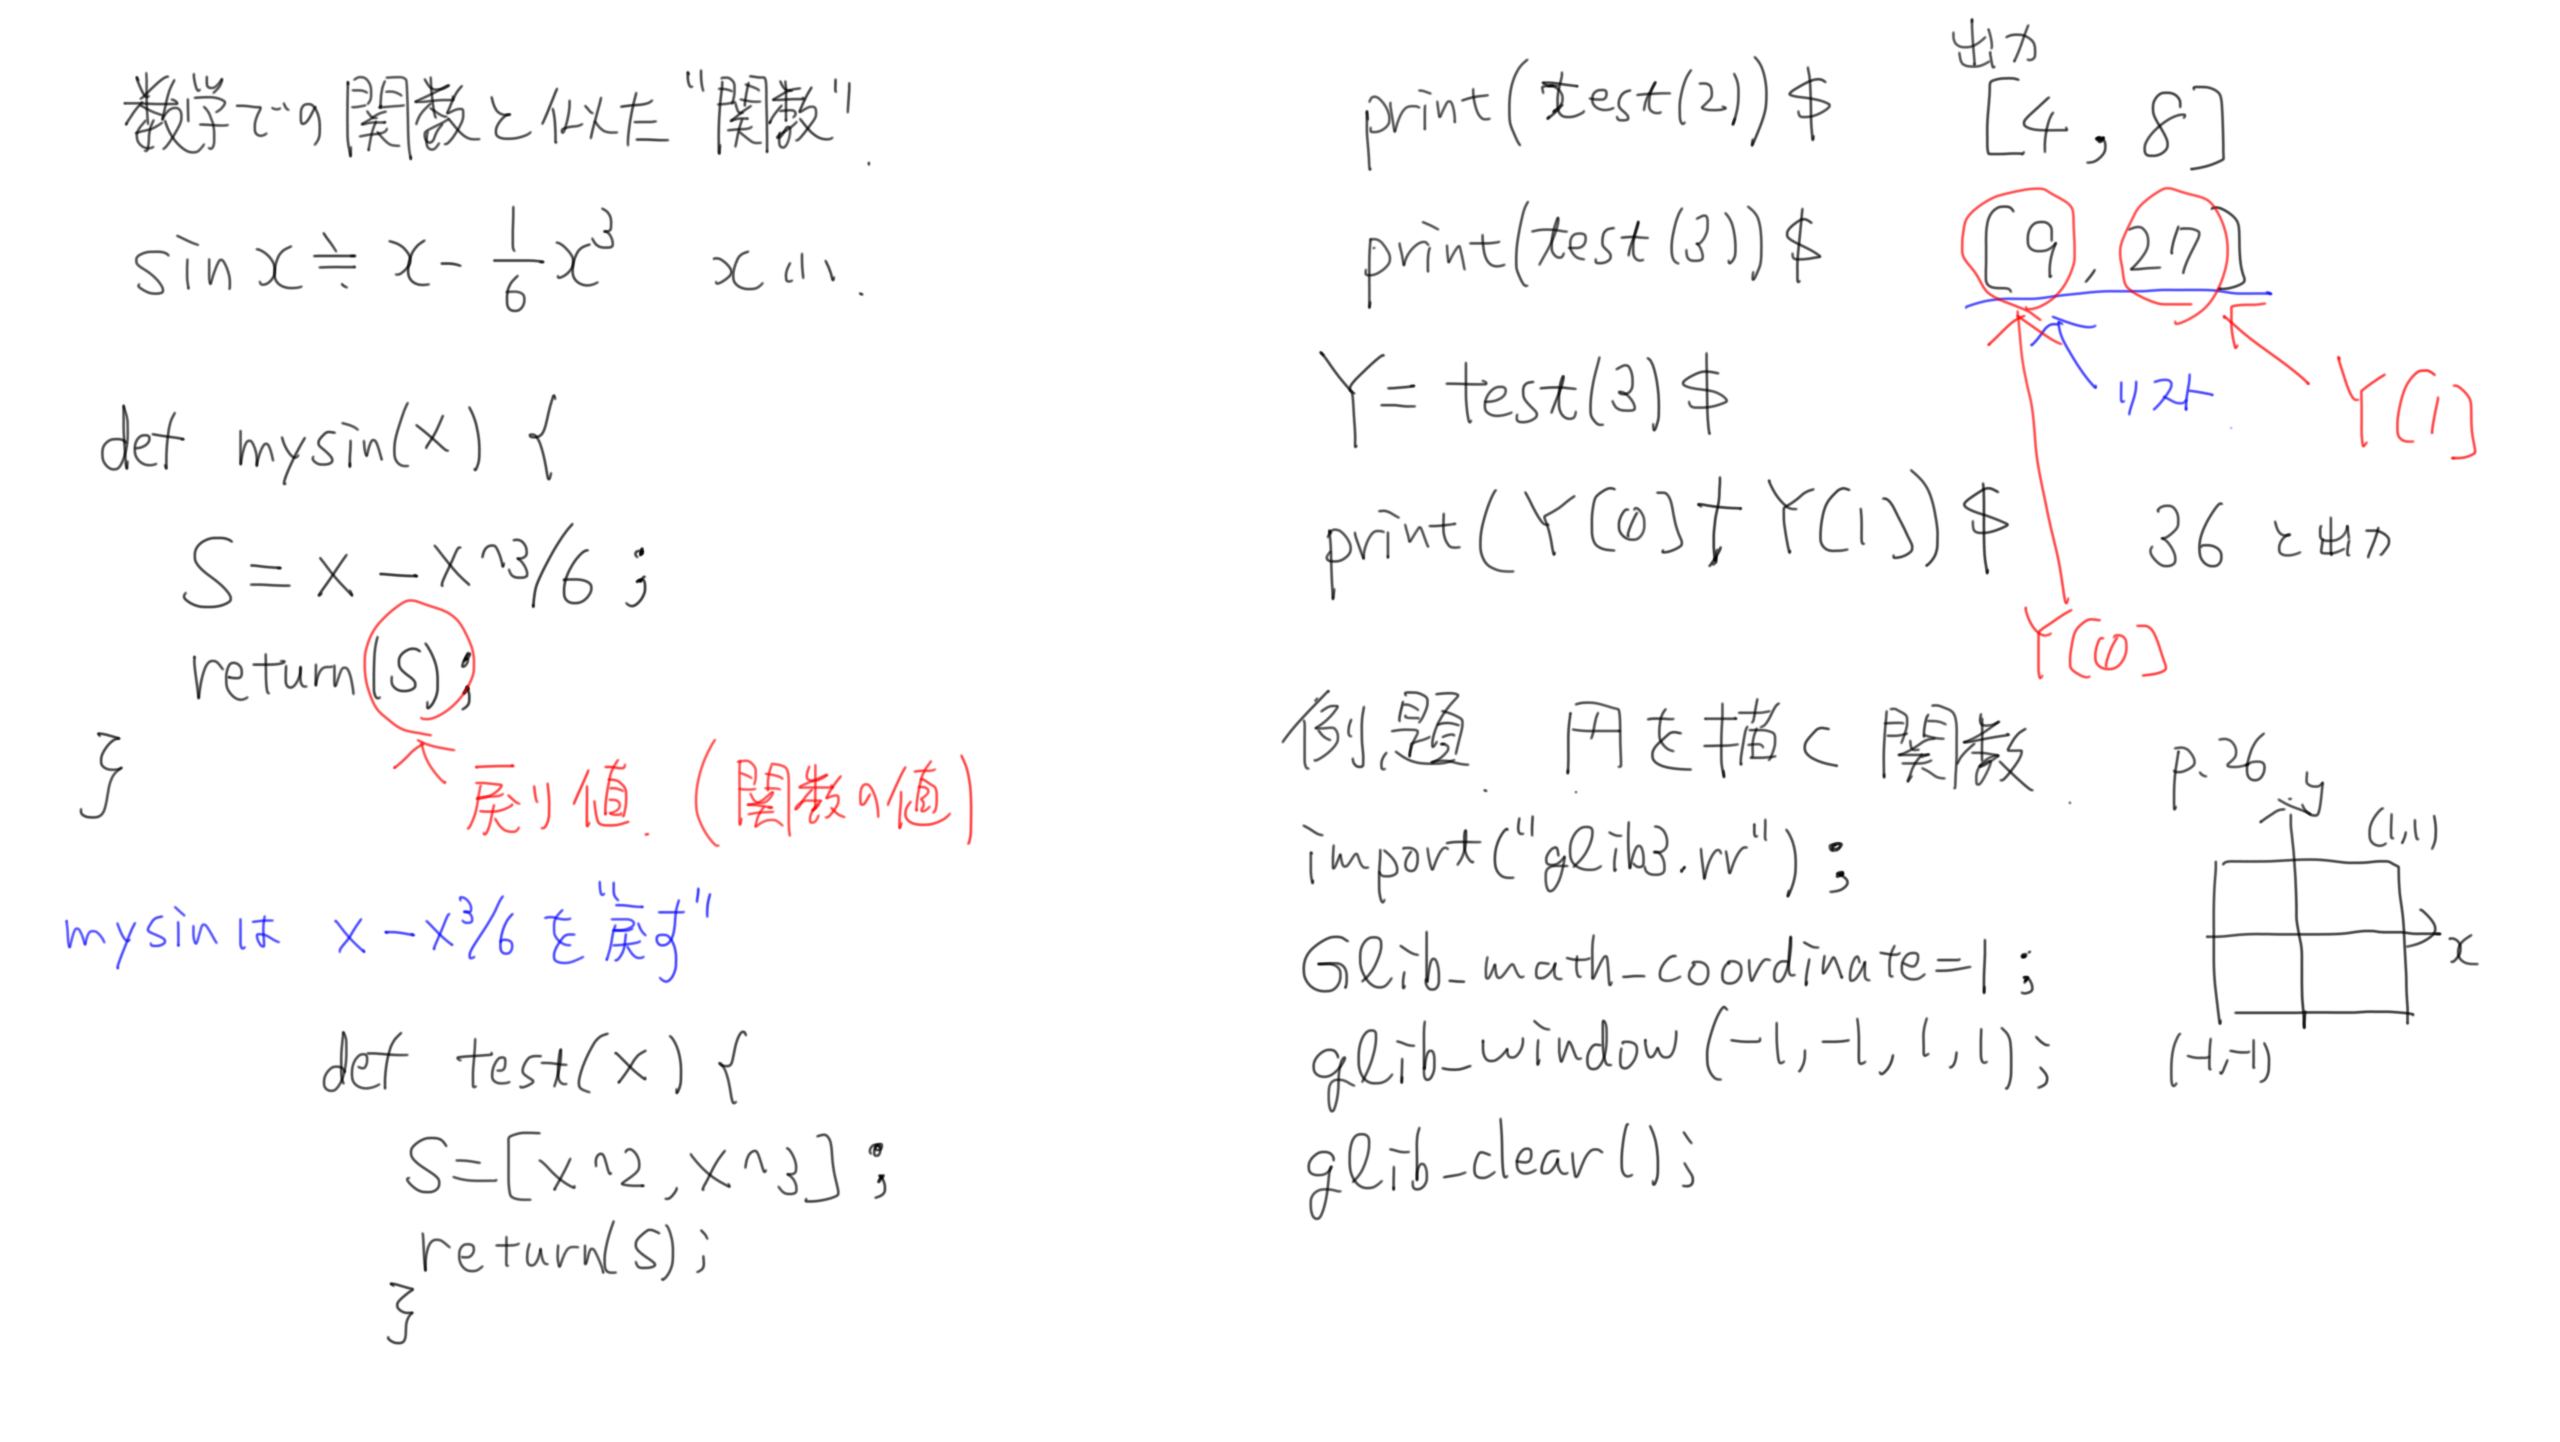 数学での関数と似た"関数".
sin x ≒ x - 1/6 x^3  x 小.
def mysin(x) {
S = x - x^3/6 ;
return(S);
}
戻り値. (関数の値)
mysinは x-x^3/6 を"戻す"
def test(x) {
S=[x^2, x^3] ;
return(S);
}
出力
print(test(2))$ [4, 8]
print(test(3))$ [9, 27]
リスト
Y[1]
Y= test(3)$
print(Y[0]+Y[1])$ 36 と出力
Y[0]
例題. 円を描く関数. p.26
import("glib3.rr");
Glib_math_coordinate=1;
glib_window(-1,-1,1,1);
glib_clear();
y
(1,1)
x
(-1,-1)